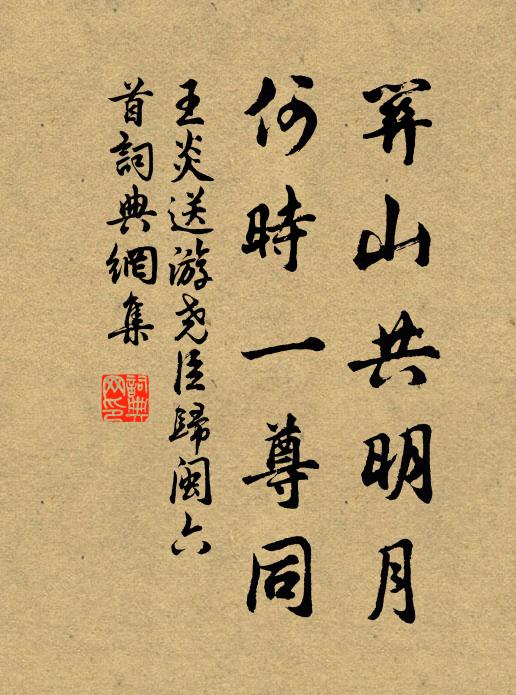 關山共明月
何時一尊同
王炎送游堯臣歸閩六
首詞典網集
詞典网印